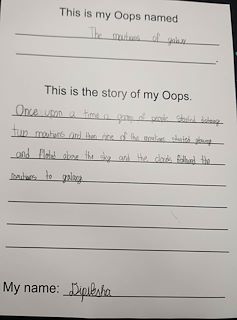 This is my Oops named
The moutions of galaxy
This is the story of my Oops.
Once upon a time a group of people started
two moutions and then one of the moutions started
and Floted above the sky and the clouds follwed the
moutions to galaxy
My name: Dipiksha